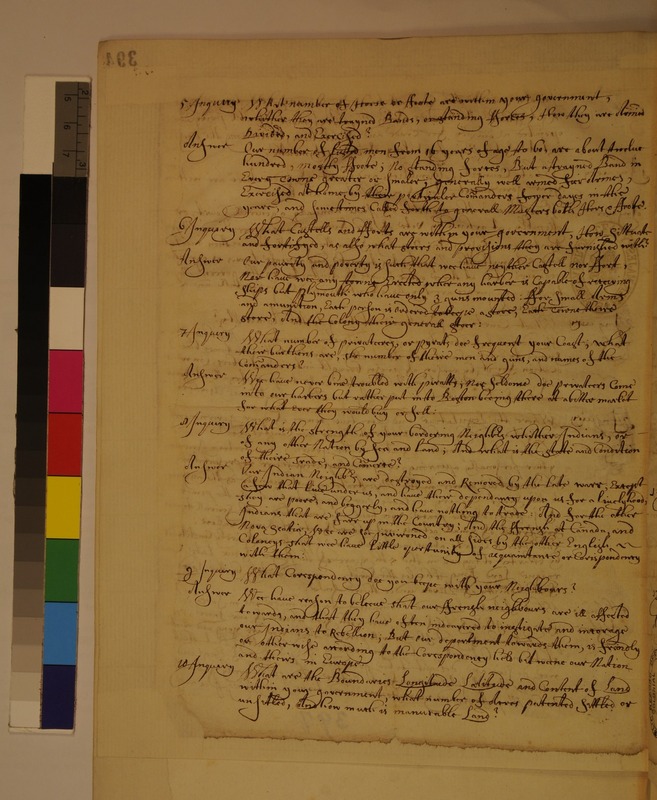 394
5 Inquiry What number of Horse or ffoote are within your government,
whether they are trayned Bands, or standing fforces, How they are Armed
Devided, and Exercised?
Answer Our number of men from 16 years of age to 60, are about twelve
hundred, mostly ffoote; No standing forces, But a trayned Band in
Every Towne greater or smaller; generally well armed fier Armes,
Exercised at home by particuler Comanders, days in the
yeare, and sometimes Called forth to generall Musters both Horse & ffoote.
6 Inquiry What Castells and fforts are within your government, How Sittuate
and fortifyed, as also what stores and provisions they are furnished with?
Answer Our paucity and poverty is such that we have neyther Castell nor ffort,
Nor have we any Erected neither any harbor is Capable of receiving
Ships but Plymouth who have only 3 guns mounted. ffor small Armes
and amunition, Each person is ordered a store, Each Towne theire
store, And the Colony theire generall store:
7 Inquiry What number of privateeres, or pyrats doe frequent your Coast, what
their burthens are, the number of theire men and guns, and names of the
Comanders?
Answer Wee have never bine troubled with piratts, Nor seldome doe privateers Come
into our harbors but rather put into Boston being there at a better market
for what ever they would buy or sell:
8 Inquiry What is the strength of your bordering Neighbors whether Indians, or
of any other Nation by sea and land; And what is the state and Condition
of theire Trade, and Comerce?
Answer Our Indian Neighbors are destroyed and Removed by the late warr, Except
a few that live under us, and have their dependancy upon us for a livelihood,
they are poore and beggerly, and have nothing to trade: And for the other
Indians that are farr up in the Country; And the ffrench at Canada, and
Nova Scotia, Wee are soe invironed on all sides by the other English
Colonys that wee have little opertunity of acquaintance or Corispondency
with them:
9 Inquiry What Corespondency doe you keepe with your Neighbours?
Answer Wee have reason to beleeve that our ffrench neighbours are ill affected
towards, and that they have often indevored to instigate and incorage
our Indians to Rebellion; But our deportment towards them, is friendly
or other wise according to the Corespondency held betwixt our Nation
and theirs in Europe
10 Inquiry What are the Boundaries Longitude Latitude and Content of Land
within your government, what number of Acres patented, settled or
unsettled, And how much is manurable Land?